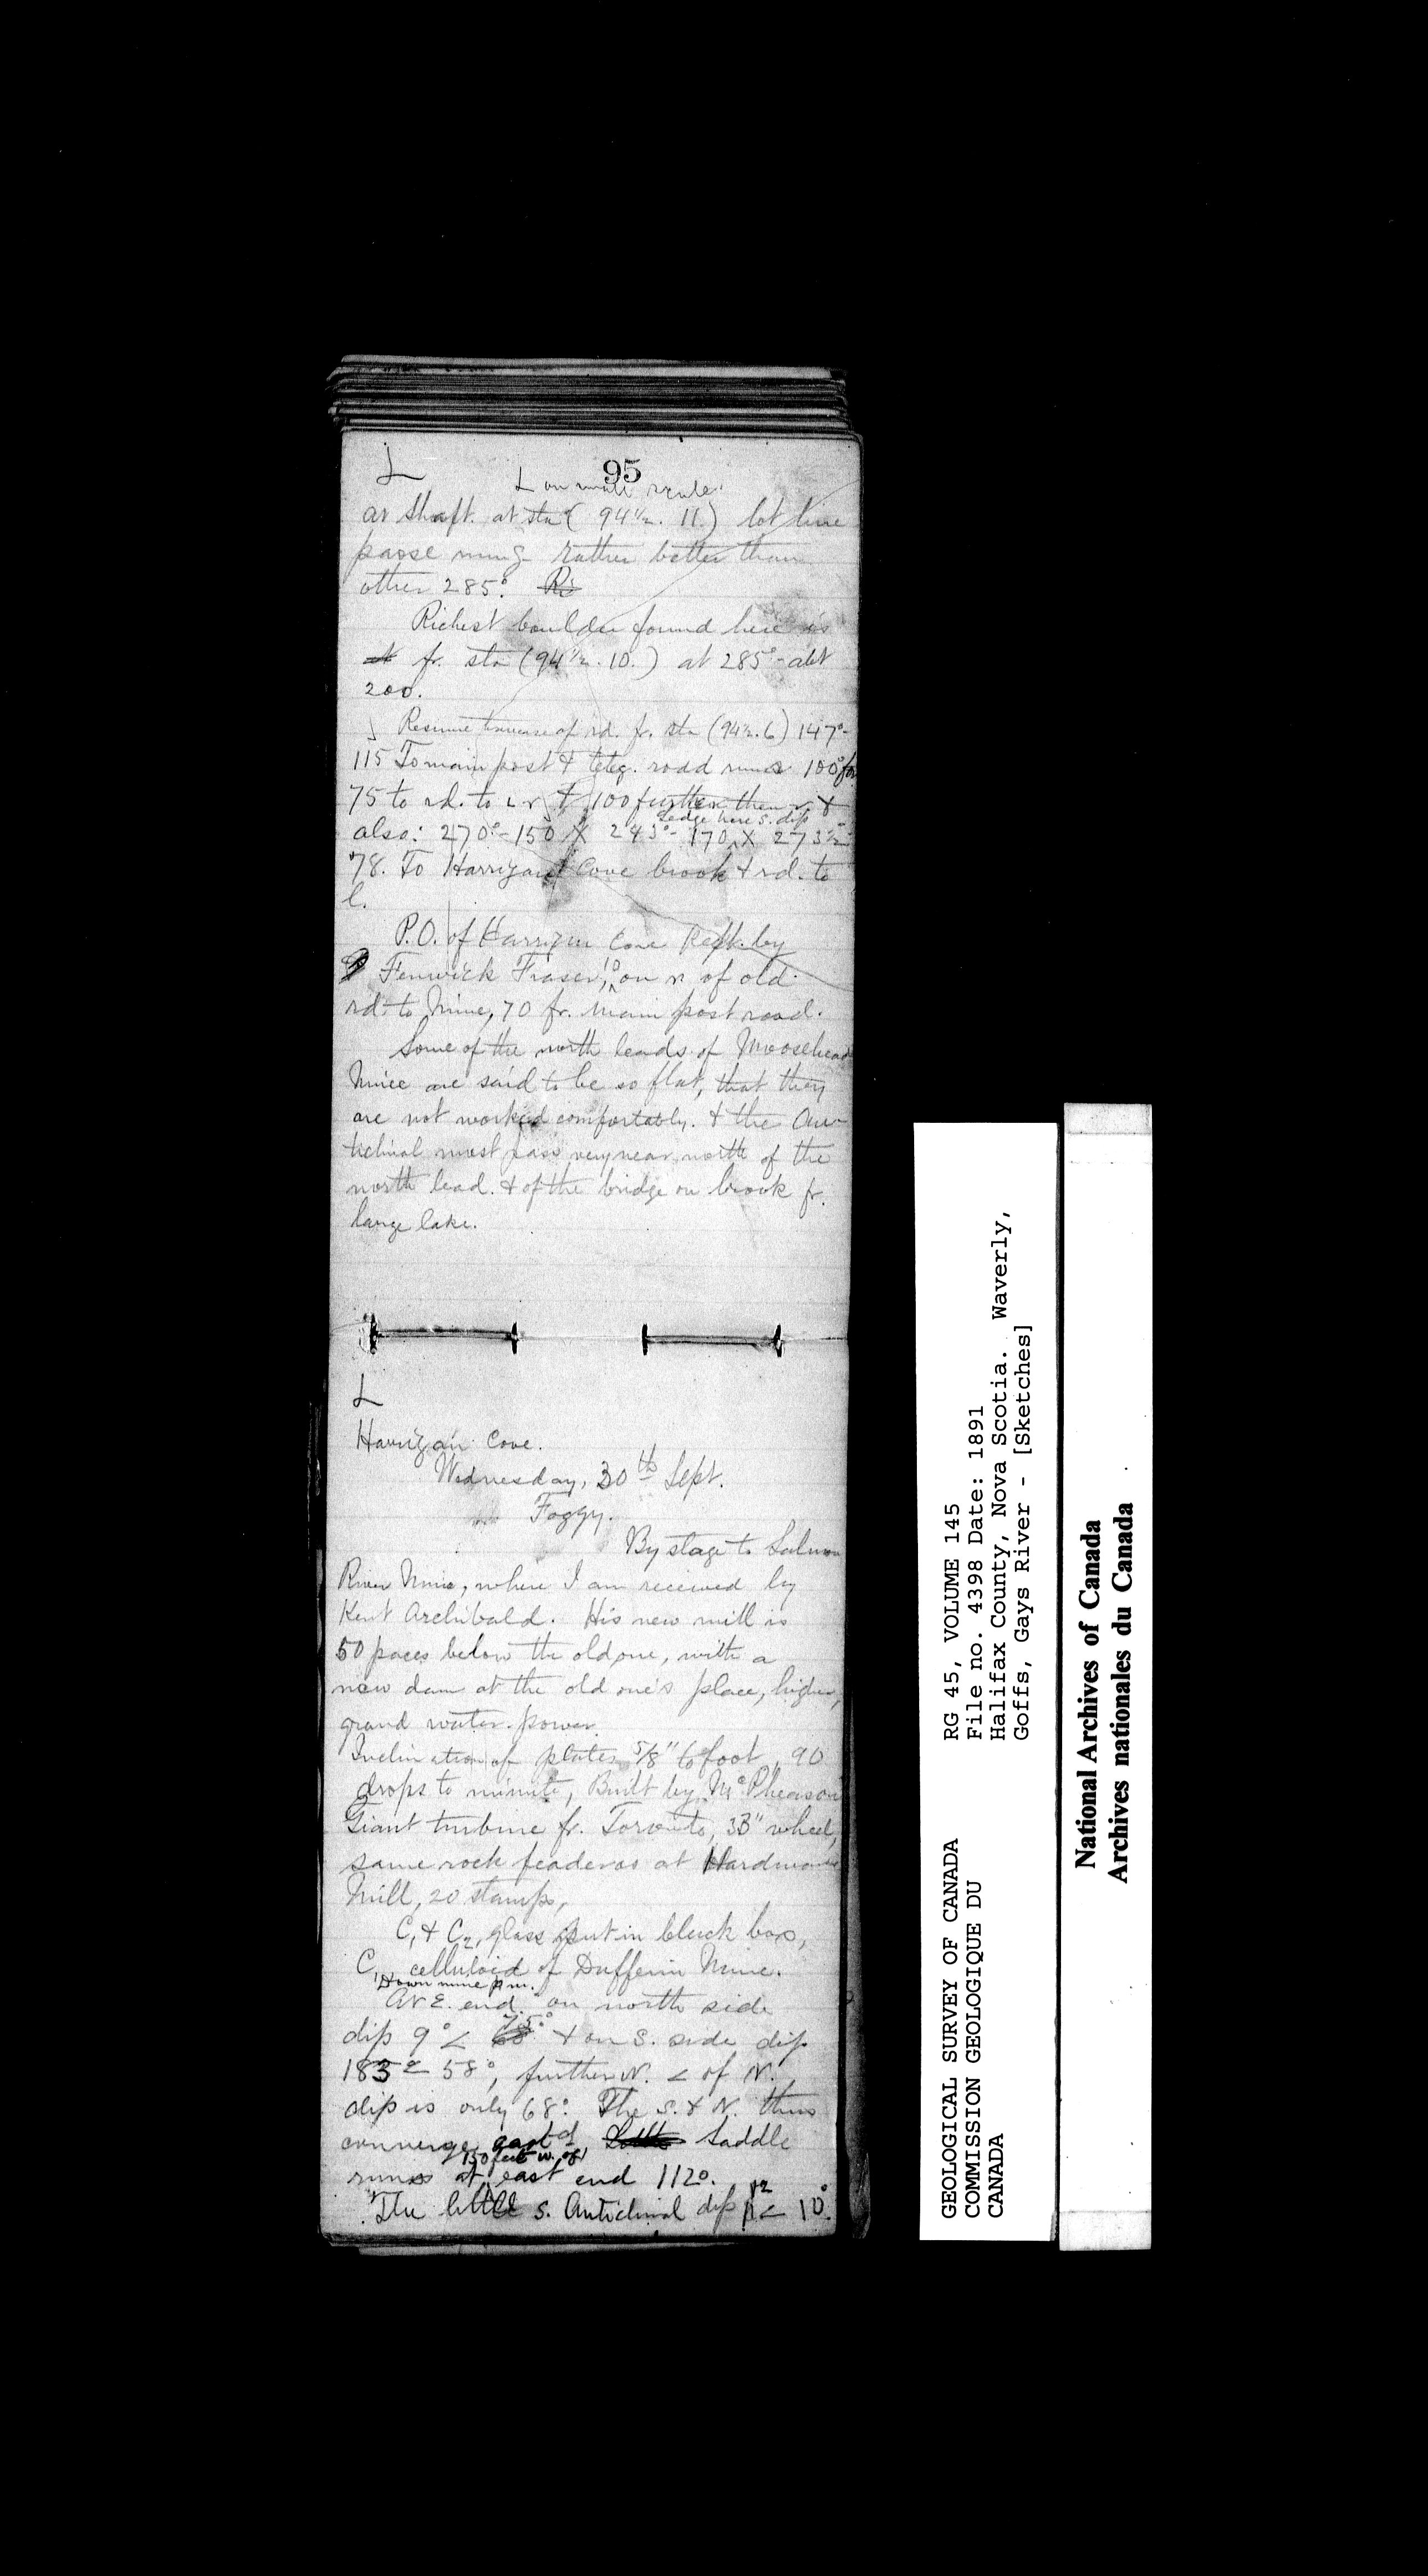 L 95
L on scale
as shaft. at sta ( 94½. 11.) lot line
passe rather better than
other 285°. Ri
Richest boulder found here is
fr. sta (94½. 10.) at 285°- abt
200.
Resume traverse of rd. fr. sta (94½. 6) 147°-
115 To main post & teleg. road runs 100° for
75 to rd. to & 100 further then &
Ledge here S. dip
also: 270°-150 X 243°- 170 X 273½°
78. To Harrigan Cove brook & rd. to
l.
P.O. of Harrigan Cove kept by
Fenwick Fraser, 10 on r. of old
rd. to Mine, 70 fr. main post road.
Some of the north leads of Moosehead
Mine are said to be so flat, that they
are not worked comfortably. & the An-
ticlinal must pass very near north of the
north lead. & of the bridge on brook fr.
large lake.
L
Harrigan Cove.
Wednesday, 30th Sept.
Foggy.
By stage to Salmon
River Mine, where I am received by
Kent Archibald. His new mill is
50 paces below the old one, with a
new dam at the old one's place, higher,
grand water-power.
Inclination of plates 5/8" to foot, 90
drops to minute, Built by McPhearson
Giant turbine fr. Toronto, 33" wheel,
same rock feader as at Hardman
Mill, 20 stamps,
C1 & C2, glass put in black box,
C1 celluloid of Dufferin Mine.
Down mine p.m.
At E. end. on north side
75°
dip 9° < & on S. side dip
183 < 58°, further N. < of N.
dip is only 68°. The S. & N. thus
converge east'd, Saddle
150 feet w. of
runs at east end 112°.
The little S. Anticlinal dip < 10°.
RG 45, VOLUME 145
File no. 4398 Date: 1891
Halifax County, Nova Scotia. Waverly,
Goffs, Gays River - [Sketches]
GEOLOGICAL SURVEY OF CANADA
COMMISSION GEOLOGIQUE DU
CANADA
National Archives of Canada
Archives nationales du Canada